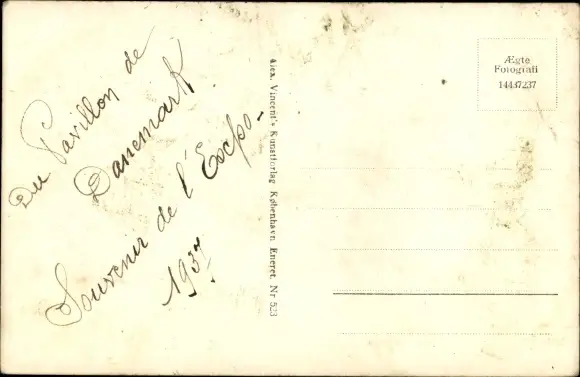 Du Pavillon de
Danemark
Souvenir de l'Expo-
1937
Alex. Vincent's Kunstforlag København Eneret. Nr 523
Ægte
Fotografi
14437237